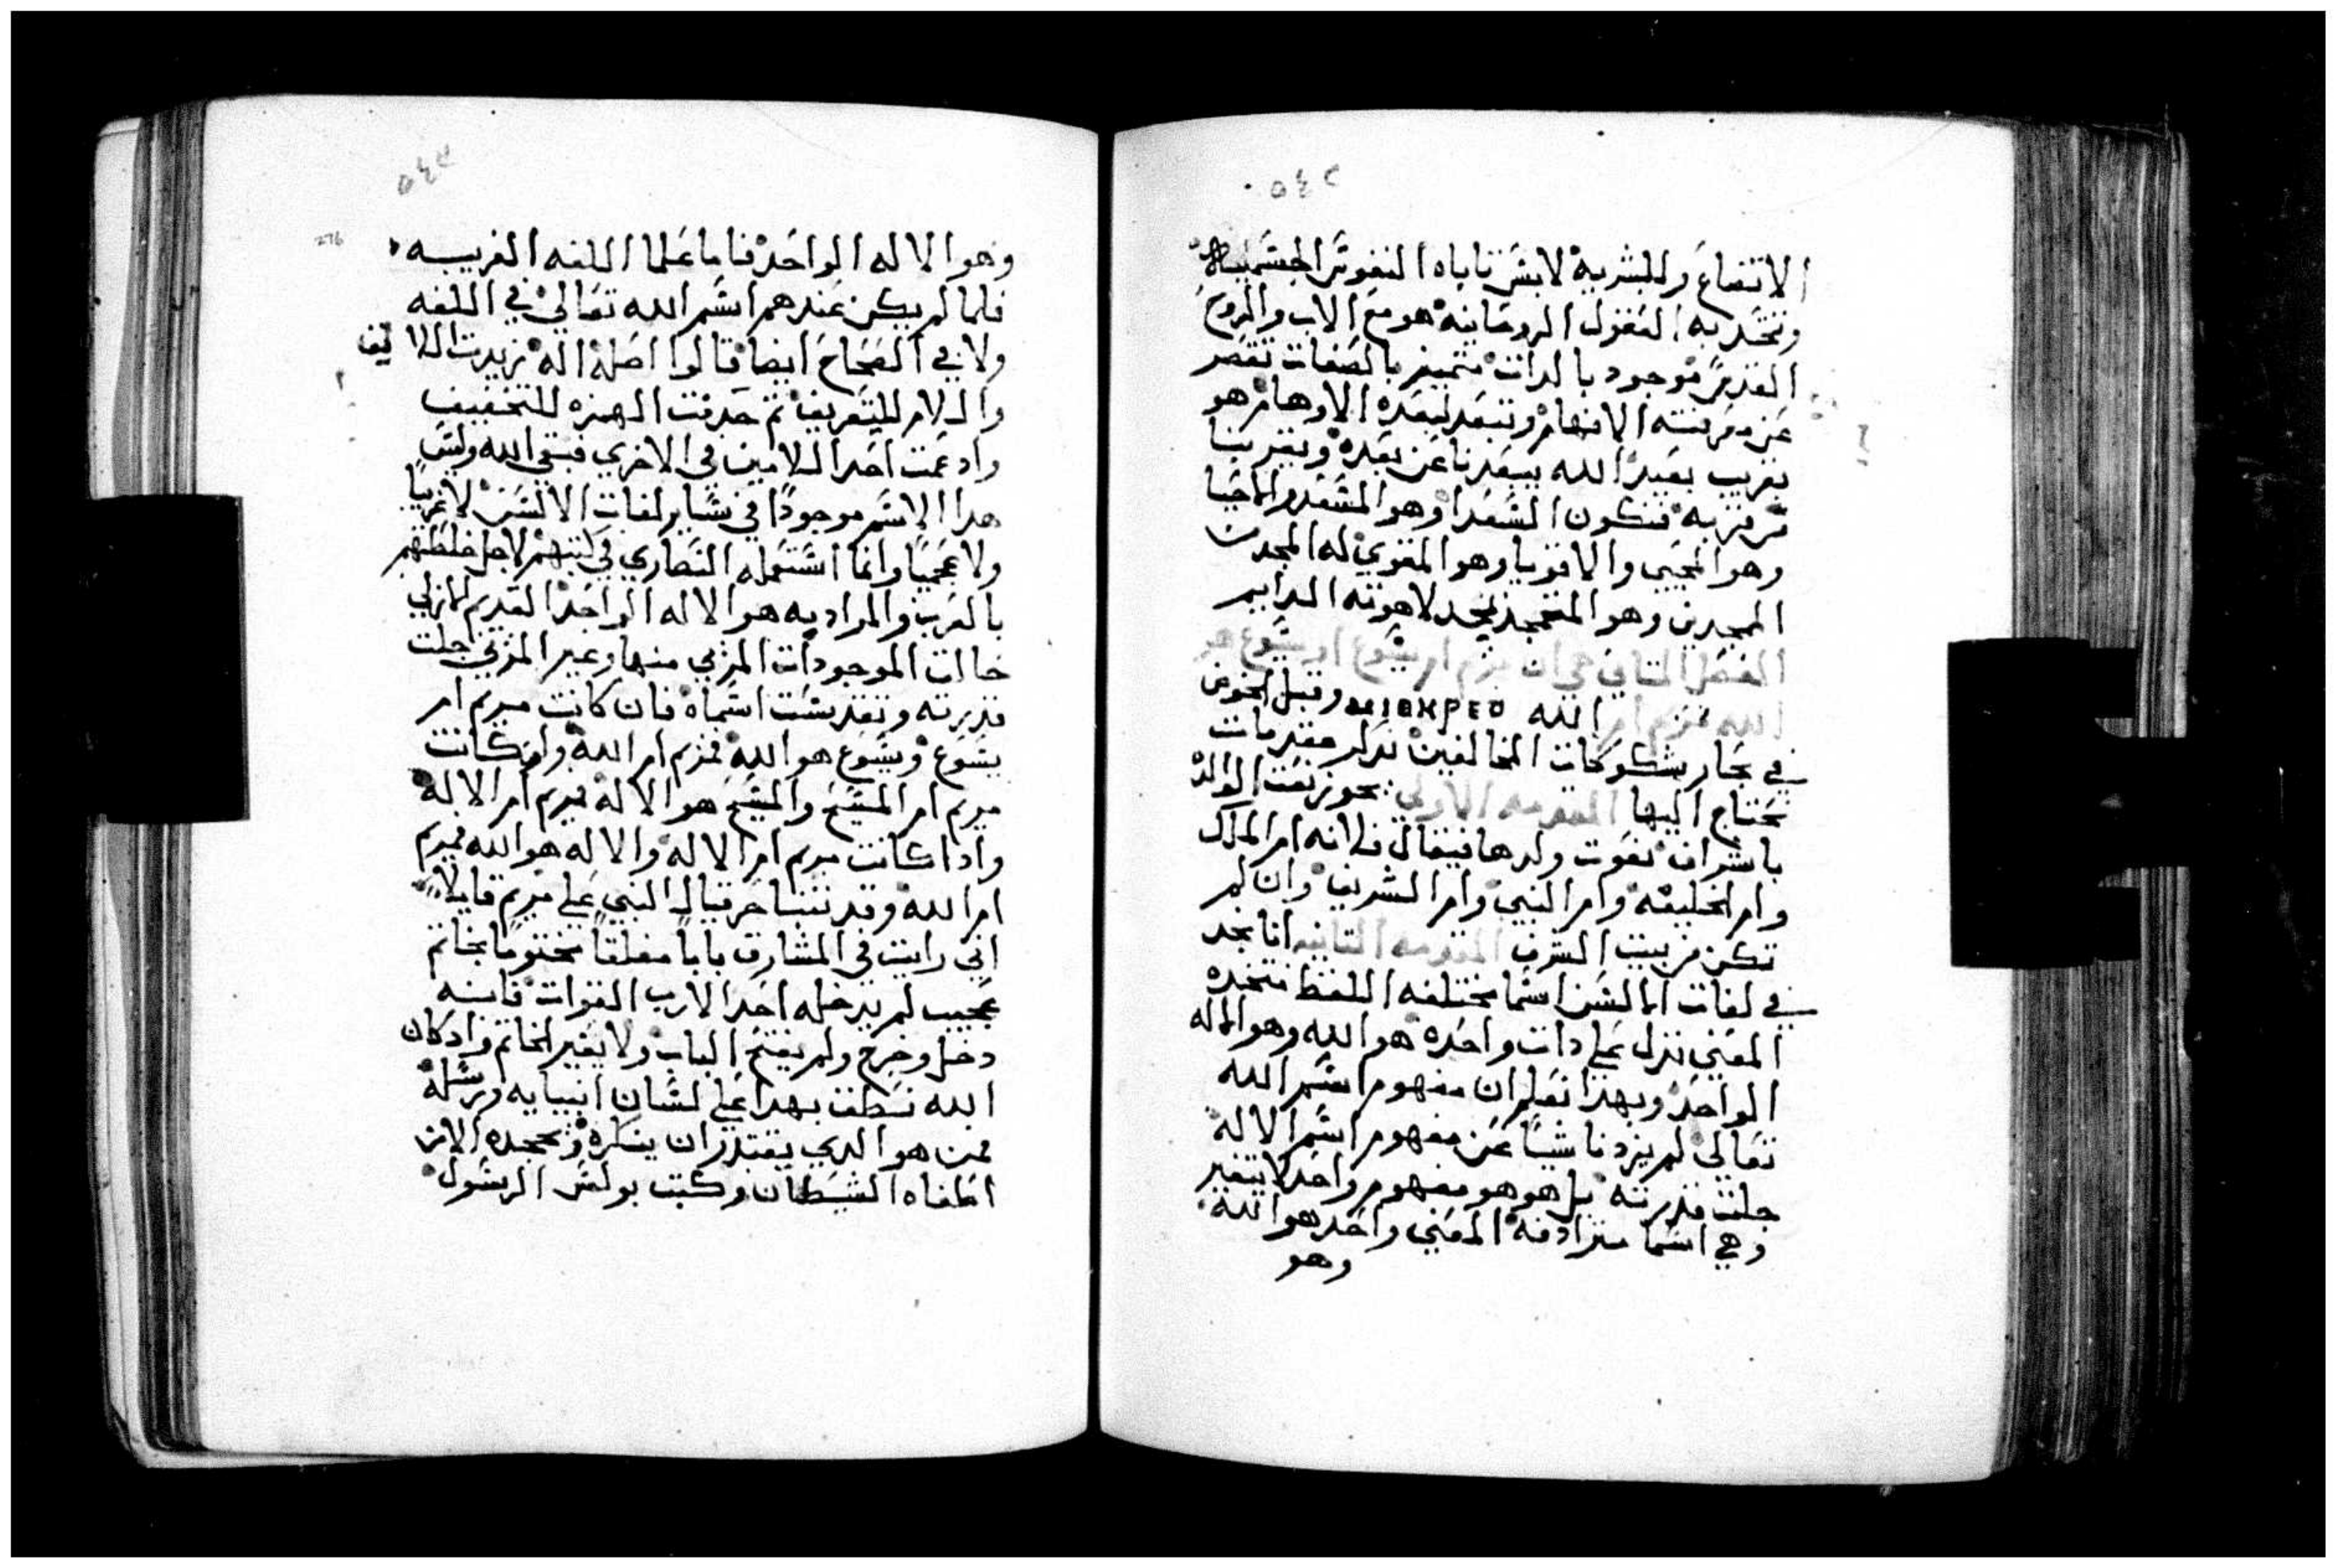 ٥٤٢
الاتضاع وللبشريه لابس تاباه النفوس الجسمانيه
وتتحد به العقول الروحانيه هو مع الاب والروح
القدس موجود بالدات متميز بالصفات تقصر
عن معرفته الافهام وتبعد لبعده الاوهام هو
قريب بعيد الله يبعدنا عن بعده ويقربنا
من قربه فنكون السعدا وهو المسعد والاحيا
وهو المحيي والاقويا وهو المقوي له المجد من
الممجدين وهو المتمجد بمجد لاهوته الدايم
الفصل التاني في ان مريم ام يسوع او يسوع هو
الله فمريم ام الله وقبل الخوض
في بحار شكوكات المخالفين نذكر مقدمات
نحتاج اليها المقدمه الاولي يجوز نعت الوالده
باشراف نعوت ولدها فيقال فلانه ام الملك
وام الخليفه وام النبي وام الشريف وان لم
تكن من بيت الشرف المقدمه التانيه انا نجد
في لغات الالسن اسما مختلفه اللفظ متحده
المعني تدل علي دات واحده هو الله وهو الاله
الواحد وبهدا نعلم ان مفهوم اسم الله
تعالي لم يزدنا شيا عن مفهوم اسم الاله
جلت قدرته بل هو هو مفهوم واحد لا يتغير
وهي اسما مترادفه المعني واحد هو الله
وهو
٥٤٣
276
وهو الاله الواحد فاما علما اللغه العربيه
فلما لم يكن عندهم اسم الله تعالي في اللغه
ولا في الصحاح ايضا قالوا اصله اله زيدت الالف
والام للتعريف تم حدفت الهمزه للتخفيف
وادغمت احد اللامين في الاخري فبقي الله وليس
هدا الاسم موجودًا في ساير لغات الالسن لا عربيًا
ولا عجميًا وانما استعمله النصاري في كتبهم لاجل خلطتهم
بالعرب والمراد به هو الاله الواحد القديم الازلي
خالق الموجودات المزيي منها وغير المزيي جلت
قدرته وتقدست اسماه فان كانت مريم ام
يسوع ويسوع هو الله فمريم ام الله وان كانت
مريم ام المسيح والمسيح هو الاله فمريم ام الاله
وادا كانت مريم ام الاله والاله هو الله فمريم
ام الله وقد تنبا حزقيال النبي علي مريم قايلا
اني رايت في المشارق بابًا مغلقًا مختومًا بخاتم
عجيب لم يدخله احد الا رب القوات فانه
دخل وخرج ولم يفتح الباب ولا يغير الخاتم وادكان
الله نطق بهدا علي لسان انبيايه ورسله
فمن هو الدي يقتدر ان ينكره ويجحده الا من
اطغاه الشيطان وكتب بولس الرسول